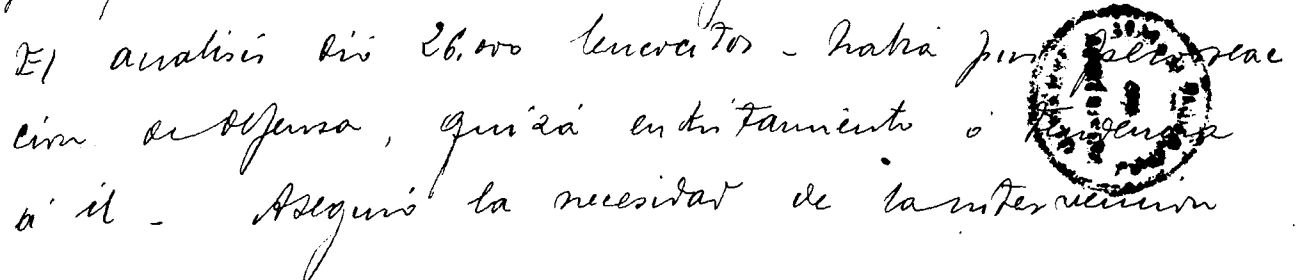 El analisis dió 26.000 leucocitos - había pus pero reac
ción de defensa, quizá enquistamiento ó tendencia
á él - Aseguró la necesidad de la intervención